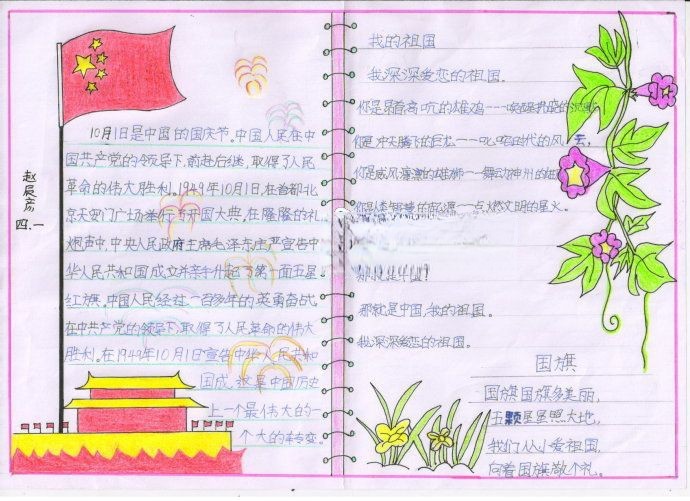 赵辰彦
四.一
10月1日是中国的国庆节。中国人民在中
国共产党的领导下,前赴后继,取得了人民
革命的伟大胜利。1949年10月1日,在首都北
京天安门广场举行了开国大典,在隆隆的礼
炮声中,中央人民政府主席毛泽东庄严宣告中
华人民共和国成立并亲手升起了第一面五星
红旗。中国人民经过一百多年的英勇奋战,
在中共产党的领导下,取得了人民革命的伟大
胜利。在1949年10月1日宣告中华人民共和
国成,这是中国历史
上一个最伟大的一
个大的转变。
我的祖国
我深深爱恋的祖国。
你是昂首高吭的雄鸡---唤醒拂晓的沉默,
你是冲天腾飞的巨龙---叱咤时代的风云,
你是威风凛凛的雄狮---舞动神州的雄
你是 智慧的 源---点燃文明的星火。
那就是中国,我的祖国。
我深深爱恋的祖国。
国旗
国旗国旗多美丽,
五颗星星照大地,
我们从小爱祖国,
向着国旗敬个礼。